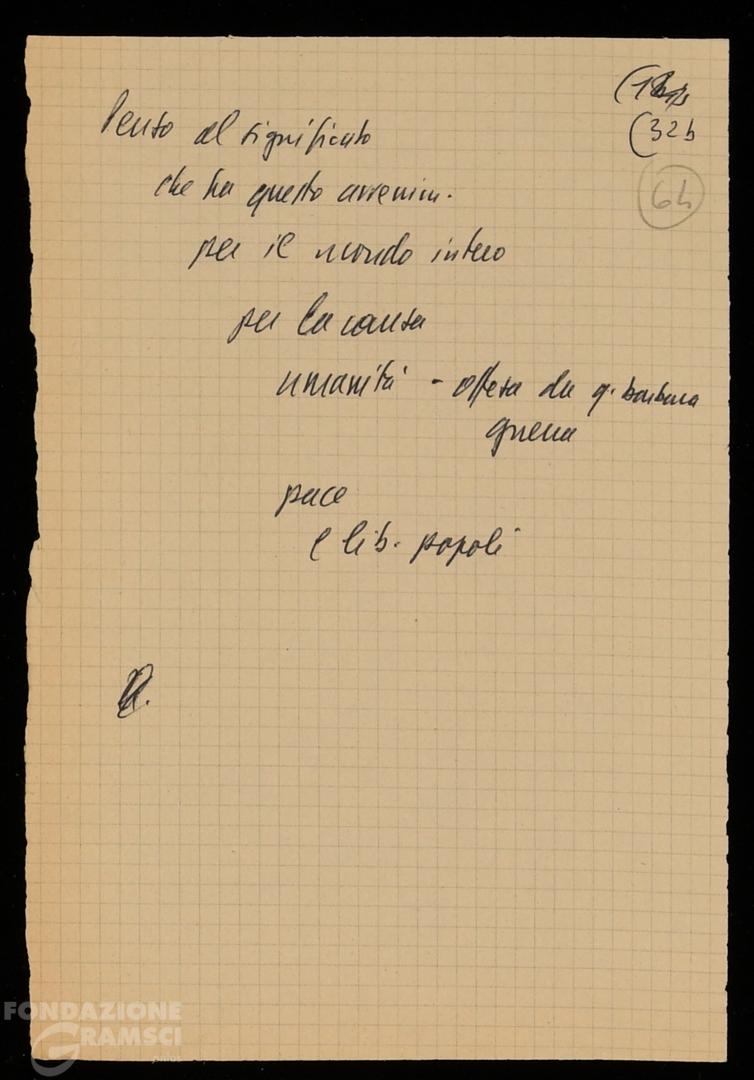 (32b
64
Penso al significato
che ha questo avvenim.
per il mondo intero
per la causa
umanità - offesa da q. barbara
guerra
pace
e lib. popoli
FONDAZIONE
GRAMSCI